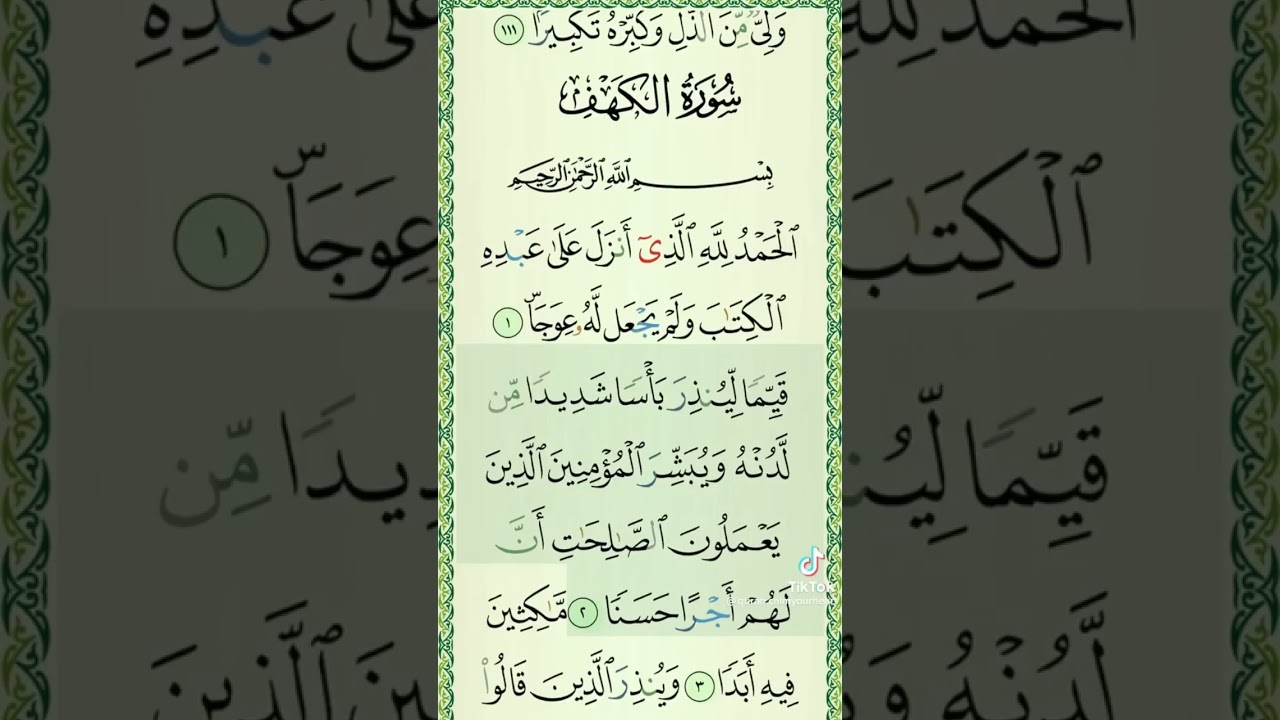 وَلِىٌّ مِّنَ ٱلذُّلِّ وَكَبِّرْهُ تَكْبِيرًۢا ١١١
سُورَةُ الكَهْفِ
بِسْمِ ٱللَّهِ ٱلرَّحْمَٰنِ ٱلرَّحِيمِ
ٱلْحَمْدُ لِلَّهِ ٱلَّذِىٓ أَنزَلَ عَلَىٰ عَبْدِهِ
ٱلْكِتَٰبَ وَلَمْ يَجْعَل لَّهُۥ عِوَجَاۜ ١
قَيِّمًا لِّيُنذِرَ بَأْسًا شَدِيدًا مِّن
لَّدُنْهُ وَيُبَشِّرَ ٱلْمُؤْمِنِينَ ٱلَّذِينَ
يَعْمَلُونَ ٱلصَّٰلِحَٰتِ أَنَّ
لَهُمْ أَجْرًا حَسَنًا ٢ مَّٰكِثِينَ
فِيهِ أَبَدًا ٣ وَيُنذِرَ ٱلَّذِينَ قَالُوا۟
TikTok